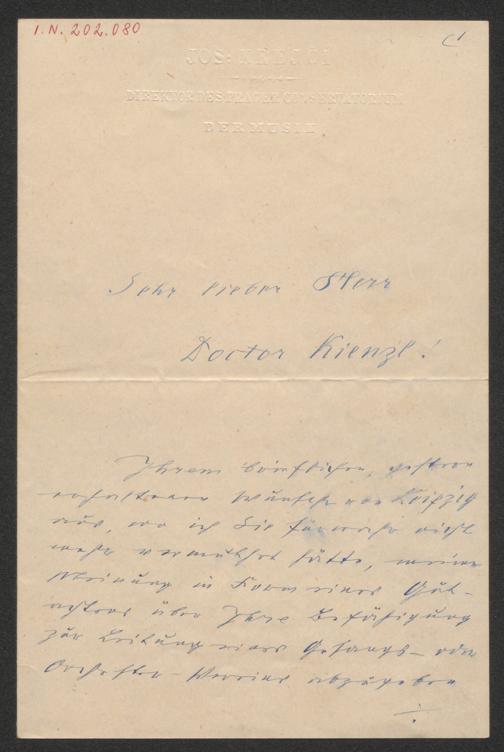 I. N. 202.080
JOS: KREJČÍ
DIREKTOR DES PRAGER CONSERVATORIUMS
DER MUSIK
Sehr lieber Herr
Doctor Kienzl!
Ihrem brieflichen, gestern
erhaltenen Wunsche von Leipzig
aus, wo ich Sie fürwahr nicht
mehr vermuthet hätte, meine
Meinung in Form eines Gut-
achtens über Ihre Befähigung
zur Leitung eines Gesangs- oder
Orchester-Vereins abzugeben